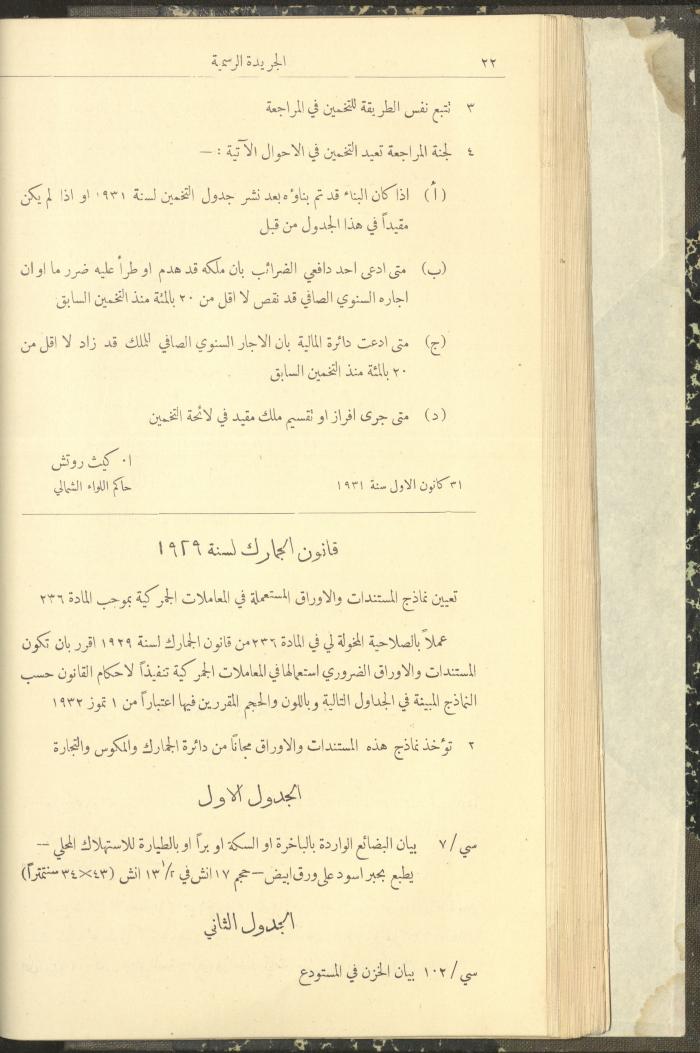 ٢٢ الجريدة الرسمية
٣ تتبع نفس الطريقة للتخمين في المراجعة
٤ لجنة المراجعة تعيد التخمين في الاحوال الآتية : —
(أ) اذا كان البناء قد تم بناؤه بعد نشر جدول التخمين لسنة ١٩٣١ او اذا لم يكن
مقيداً في هذا الجدول من قبل
(ب) متى ادعى احد دافعي الضرائب بان ملكه قد هدم او طرأ عليه ضرر ما او ان
اجاره السنوي الصافي قد نقص لا اقل من ٢٠ بالمئة منذ التخمين السابق
(ج) متى ادعت دائرة المالية بان الاجار السنوي الصافي للملك قد زاد لا اقل من
٢٠ بالمئة منذ التخمين السابق
(د) متى جرى افراز او تقسيم ملك مقيد في لائحة التخمين
ا. كيث روتش
٣١ كانون الاول سنة ١٩٣١ حاكم اللواء الشمالي
قانون الجمارك لسنة ١٩٢٩
تعيين نماذج المستندات والاوراق المستعملة في المعاملات الجمركية بموجب المادة ٢٣٦
عملاً بالصلاحية المخولة لي في المادة ٢٣٦ من قانون الجمارك لسنة ١٩٢٩ اقرر بان تكون
المستندات والاوراق الضروري استعمالها في المعاملات الجمركية تنفيذاً لاحكام القانون حسب
النماذج المبينة في الجداول التالية وباللون والحجم المقررين فيها اعتباراً من ١ تموز ١٩٣٢
٢ تؤخذ نماذج هذه المستندات والاوراق مجاناً من دائرة الجمارك والمكوس والتجارة
الجدول الاول
سي/٧ بيان البضائع الواردة بالباخرة او السكة او براً او بالطيارة للاستهلاك المحلي —
يطبع بحبر اسود على ورق ابيض — حجم ١٧ انش في ١/٢ ١٣ انش (٤٣×٣٤ سنتمتراً)
الجدول الثاني
سي/١٠٢ بيان الخزن في المستودع